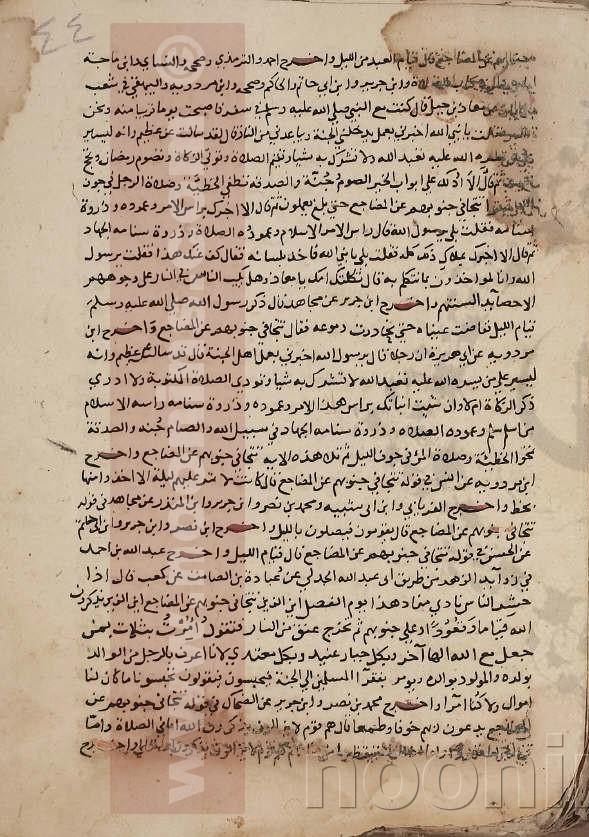 ٤٤
جنوبهم عن المضاجع قال قيام العبد من الليل واخرج احمد والترمذي وصححه والنسائي وابن ماجة
وابن جرير وابن ابي حاتم والحاكم وصححه وابن مردويه والبيهقي في شعب
عن معاذ بن جبل قال كنت مع النبي صلي الله عليه وسلم في سفر فاصبحت يوما قريبا منه ونحن
يا نبي الله اخبرني بعمل يدخلني الجنة ويباعدني من النار قال لقد سالت عن عظيم وانه ليسير
الله عليه تعبد الله ولا تشرك به شيا وتقيم الصلاة وتوتي الزكاة وتصوم رمضان وتحج
ثم قال الا ادلك علي ابواب الخير الصوم جُنّة والصدقه تطفي الخطيئة وصلاة الرجل في جوف
تتجافي جنوبهم عن المضاجع حتي بلغ يعملون ثم قال الا اخبرك براس الامر وعموده وذروة
سنامه فقلت بلي يرسول الله قال راس الامر الاسلام وعموده الصلاة وذروة سنامه الجهاد
ثم قال الا اخبرك بملاك ذلك كله فقلت بلي يا نبي الله فاخذ بلسانه فقال كف عنك هذا فقلت يرسول
الله وانا لمواخذون بما نتكلم به قال ثكلتك امك يا معاذ وهل يكب الناس في النار علي وجوههم
الا حصايد السنتهم واخرج ابن جرير عن مجاهد قال ذكر رسول الله صلي الله عليه وسلم
قيام الليل ففاضت عيناه حتي تحادرت دموعه فقال تتجافي جنوبهم عن المضاجع واخرج ابن
مردويه عن ابي هريرة ان رجلا قال يرسول الله اخبرني بعمل اهل الجنة قال قد سالت عن عظيم وانه
ليسير علي من يسره الله عليه تعبد الله لا تشرك به شيا وتودي الصلاة المكتوبة ولا ادري
ذكر الزكاة ام لا وان شيت انباتك براس هذا الامر وعموده وذروة سنامه راسه الاسلام
من اسلم سلم وعموده الصلاه وذروة سنامه الجهاد في سبيل الله والصيام جُنه والصدقة
تمحوا الخطيئة وصلاة المرء في جوف الليل ثم تلا هذه الايه تتجافي جنوبهم عن المضاجع واخرج
ابن مردويه عن انس في قوله تتجافي جنوبهم عن المضاجع قال كانت لا تمر عليهم ليلة الا اخذوا منها
بحظ واخرج الفريابي وابن ابي شيبه ومحمد بن نصر وابن جرير وابن المنذر عن مجاهد في قوله
تتجافي جنوبهم عن المضاجع قال يقومون فيصلون بالليل واخرج ابن نصر وابن جرير
عن الحسن في قوله تتجافي جنوبهم عن المضاجع قال قيام الليل واخرج عبد الله بن احمد
في زوايد الزهد من طريق ابي عبد الله الجدلي عن عُبادة بن الصامت عن كعب قال اذا
حشر الناس نادي مناد هذا يوم الفصل اين الذين تتجافي جنوبهم عن المضاجع اين الذين يذكرون
الله قياما وقعُودًا وعلي جنوبهم ثم تخرج عنق من النار فتقول اُمِرْتُ بثلاث بمن
جعل مع الله الها آخر وبكل جبار عنيد وبكل معتدي لانا اعرف بالرجل من الوالد
بولده والمولود بوالده ويومر بفقرا المسلمين الي الجنة فيحبسون فيقولون تحبسونا ما كان لنا
اموال ولا كُنا اُمَرَا واخرج محمد بن نصر وابن جرير عن الضحاك في قوله تتجافي جنوبهم عن
المضاجع يدعون ربهم خوفا وطمعا قال هم قوم لا يزالون يذكرون الله اما في الصلاة واما
noonin